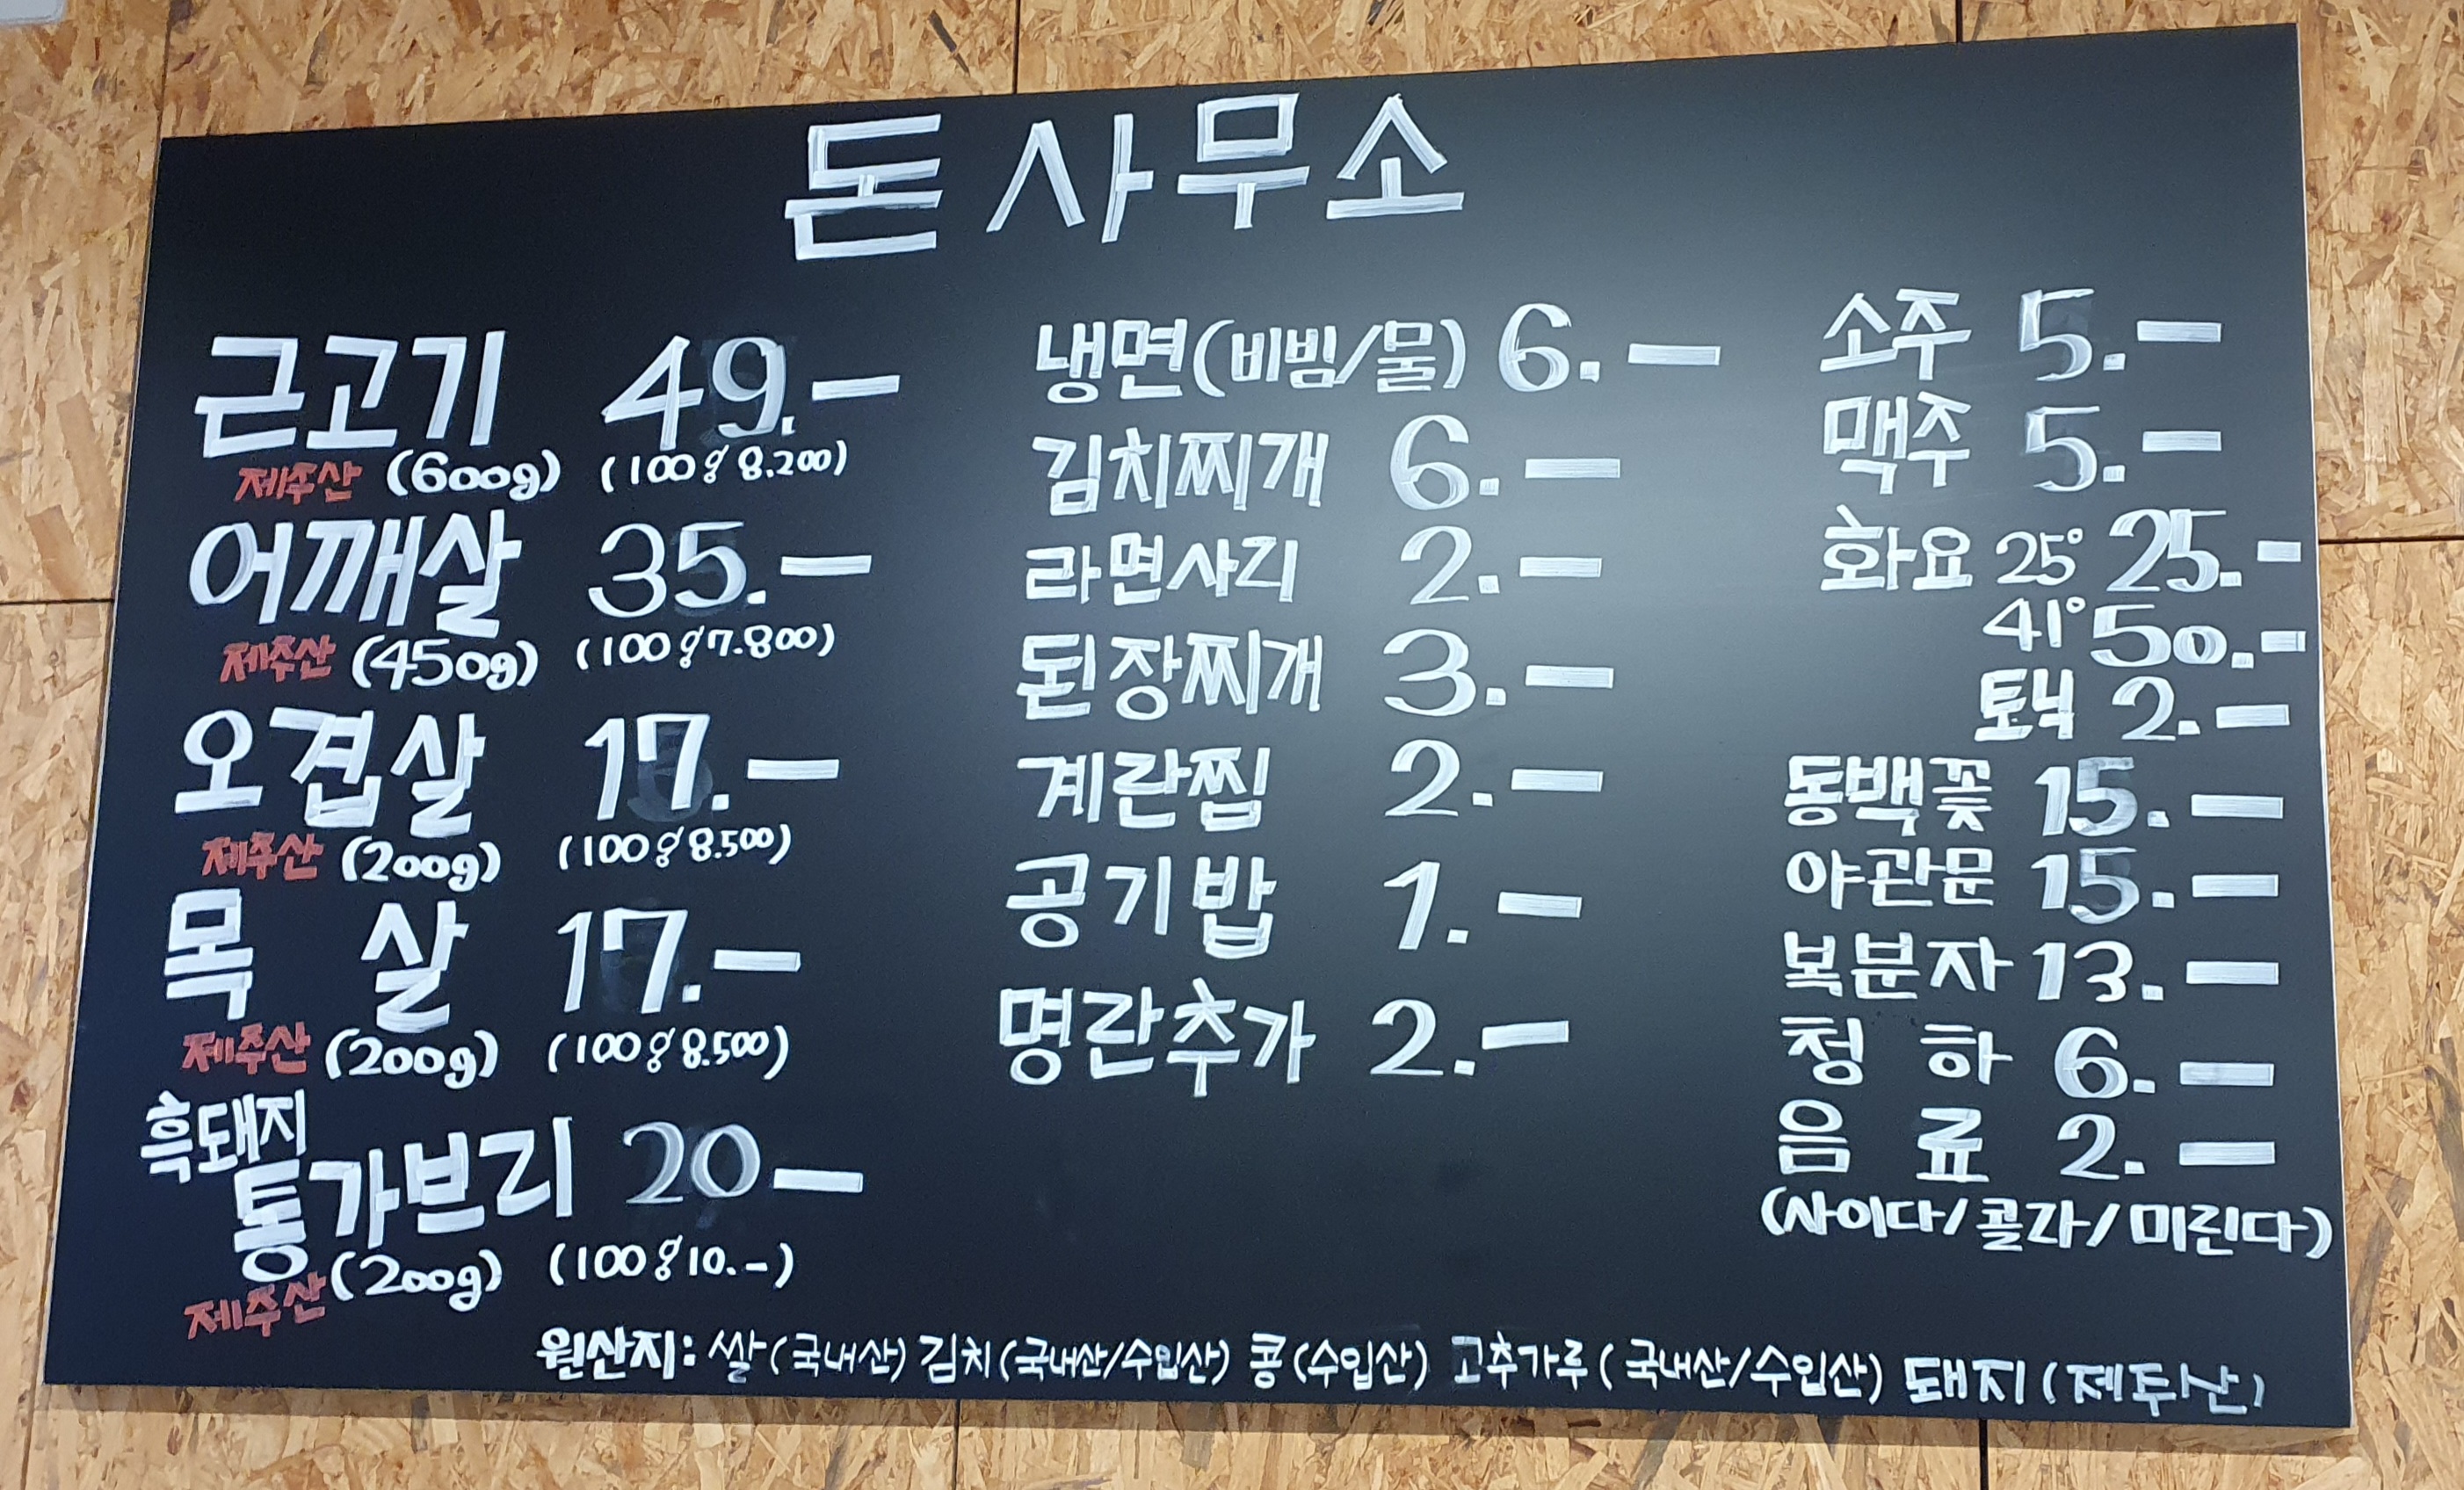 돈사무소
근고기 49.-
제주산 (600g) (100g 8.200)
어깨살 35.-
제주산 (450g) (100g 7.800)
오겹살 17.-
제주산 (200g) (100g 8.500)
목살 17.-
제주산 (200g) (100g 8.500)
흑돼지
통가브리 20-
제주산 (200g) (100g 10.-)
냉면(비빔/물) 6.-
김치찌개 6.-
라면사리 2.-
된장찌개 3.-
계란찜 2.-
공기밥 1.-
명란추가 2.-
소주 5.-
맥주 5.-
화요 25° 25.-
41° 50.-
토닉 2.-
동백꽃 15.-
야관문 15.-
복분자 13.-
청하 6.-
음료 2.-
(사이다/콜라/미린다)
원산지: 쌀(국내산) 김치(국내산/수입산) 콩(수입산) 고추가루(국내산/수입산) 돼지(제주산)